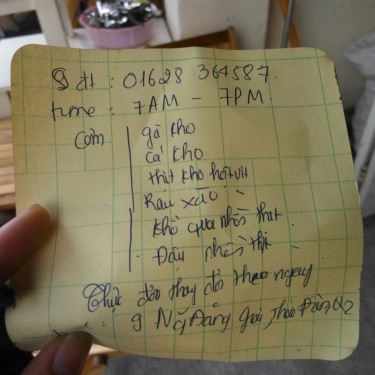 Sđt : 01628 364587.
time : 7AM - 7PM
Cơm
gà kho
cá kho
thịt kho hột vịt
Rau xào
Khổ qua nhồi thịt
Đậu nhồi thịt
Thực đơn thay đổi theo ngày
9 Ng Đăng Giai, Thảo Điền, Q2